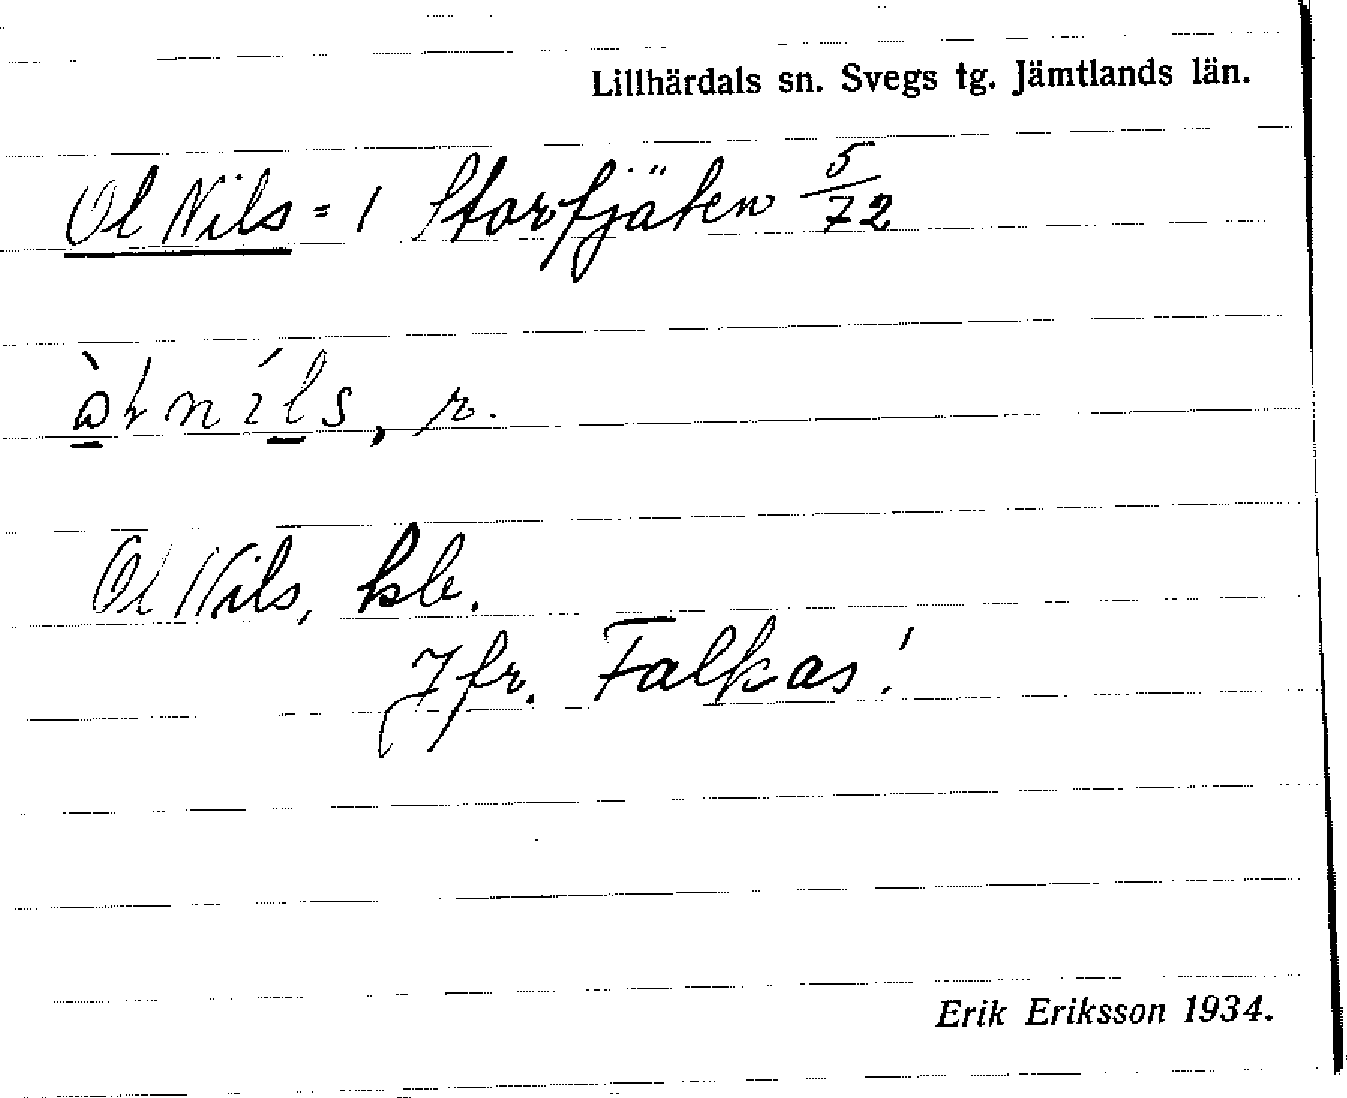 Lillhärdals sn. Svegs tg. Jämtlands län.
Ol Nils = 1 Storfjäten 5/72
r.
Ol Nils, kb.
Jfr. Falkas!
Erik Eriksson 1934.